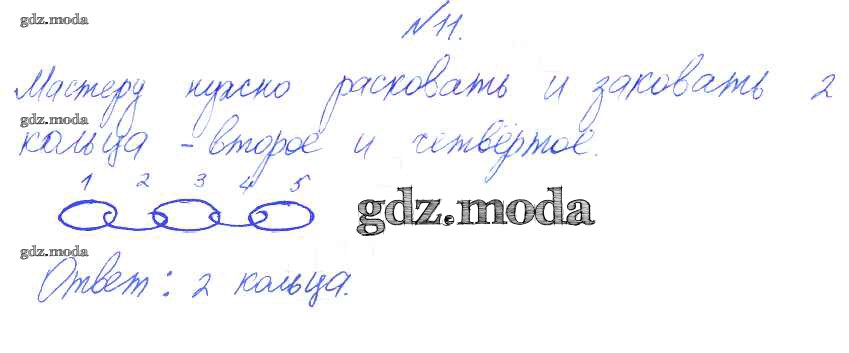 gdz.moda
№11.
Мастеру нужно расковать и заковать 2
gdz.moda
кольца - второе и четвёртое.
1 2 3 4 5
gdz.moda
gdz.moda
Ответ: 2 кольца.